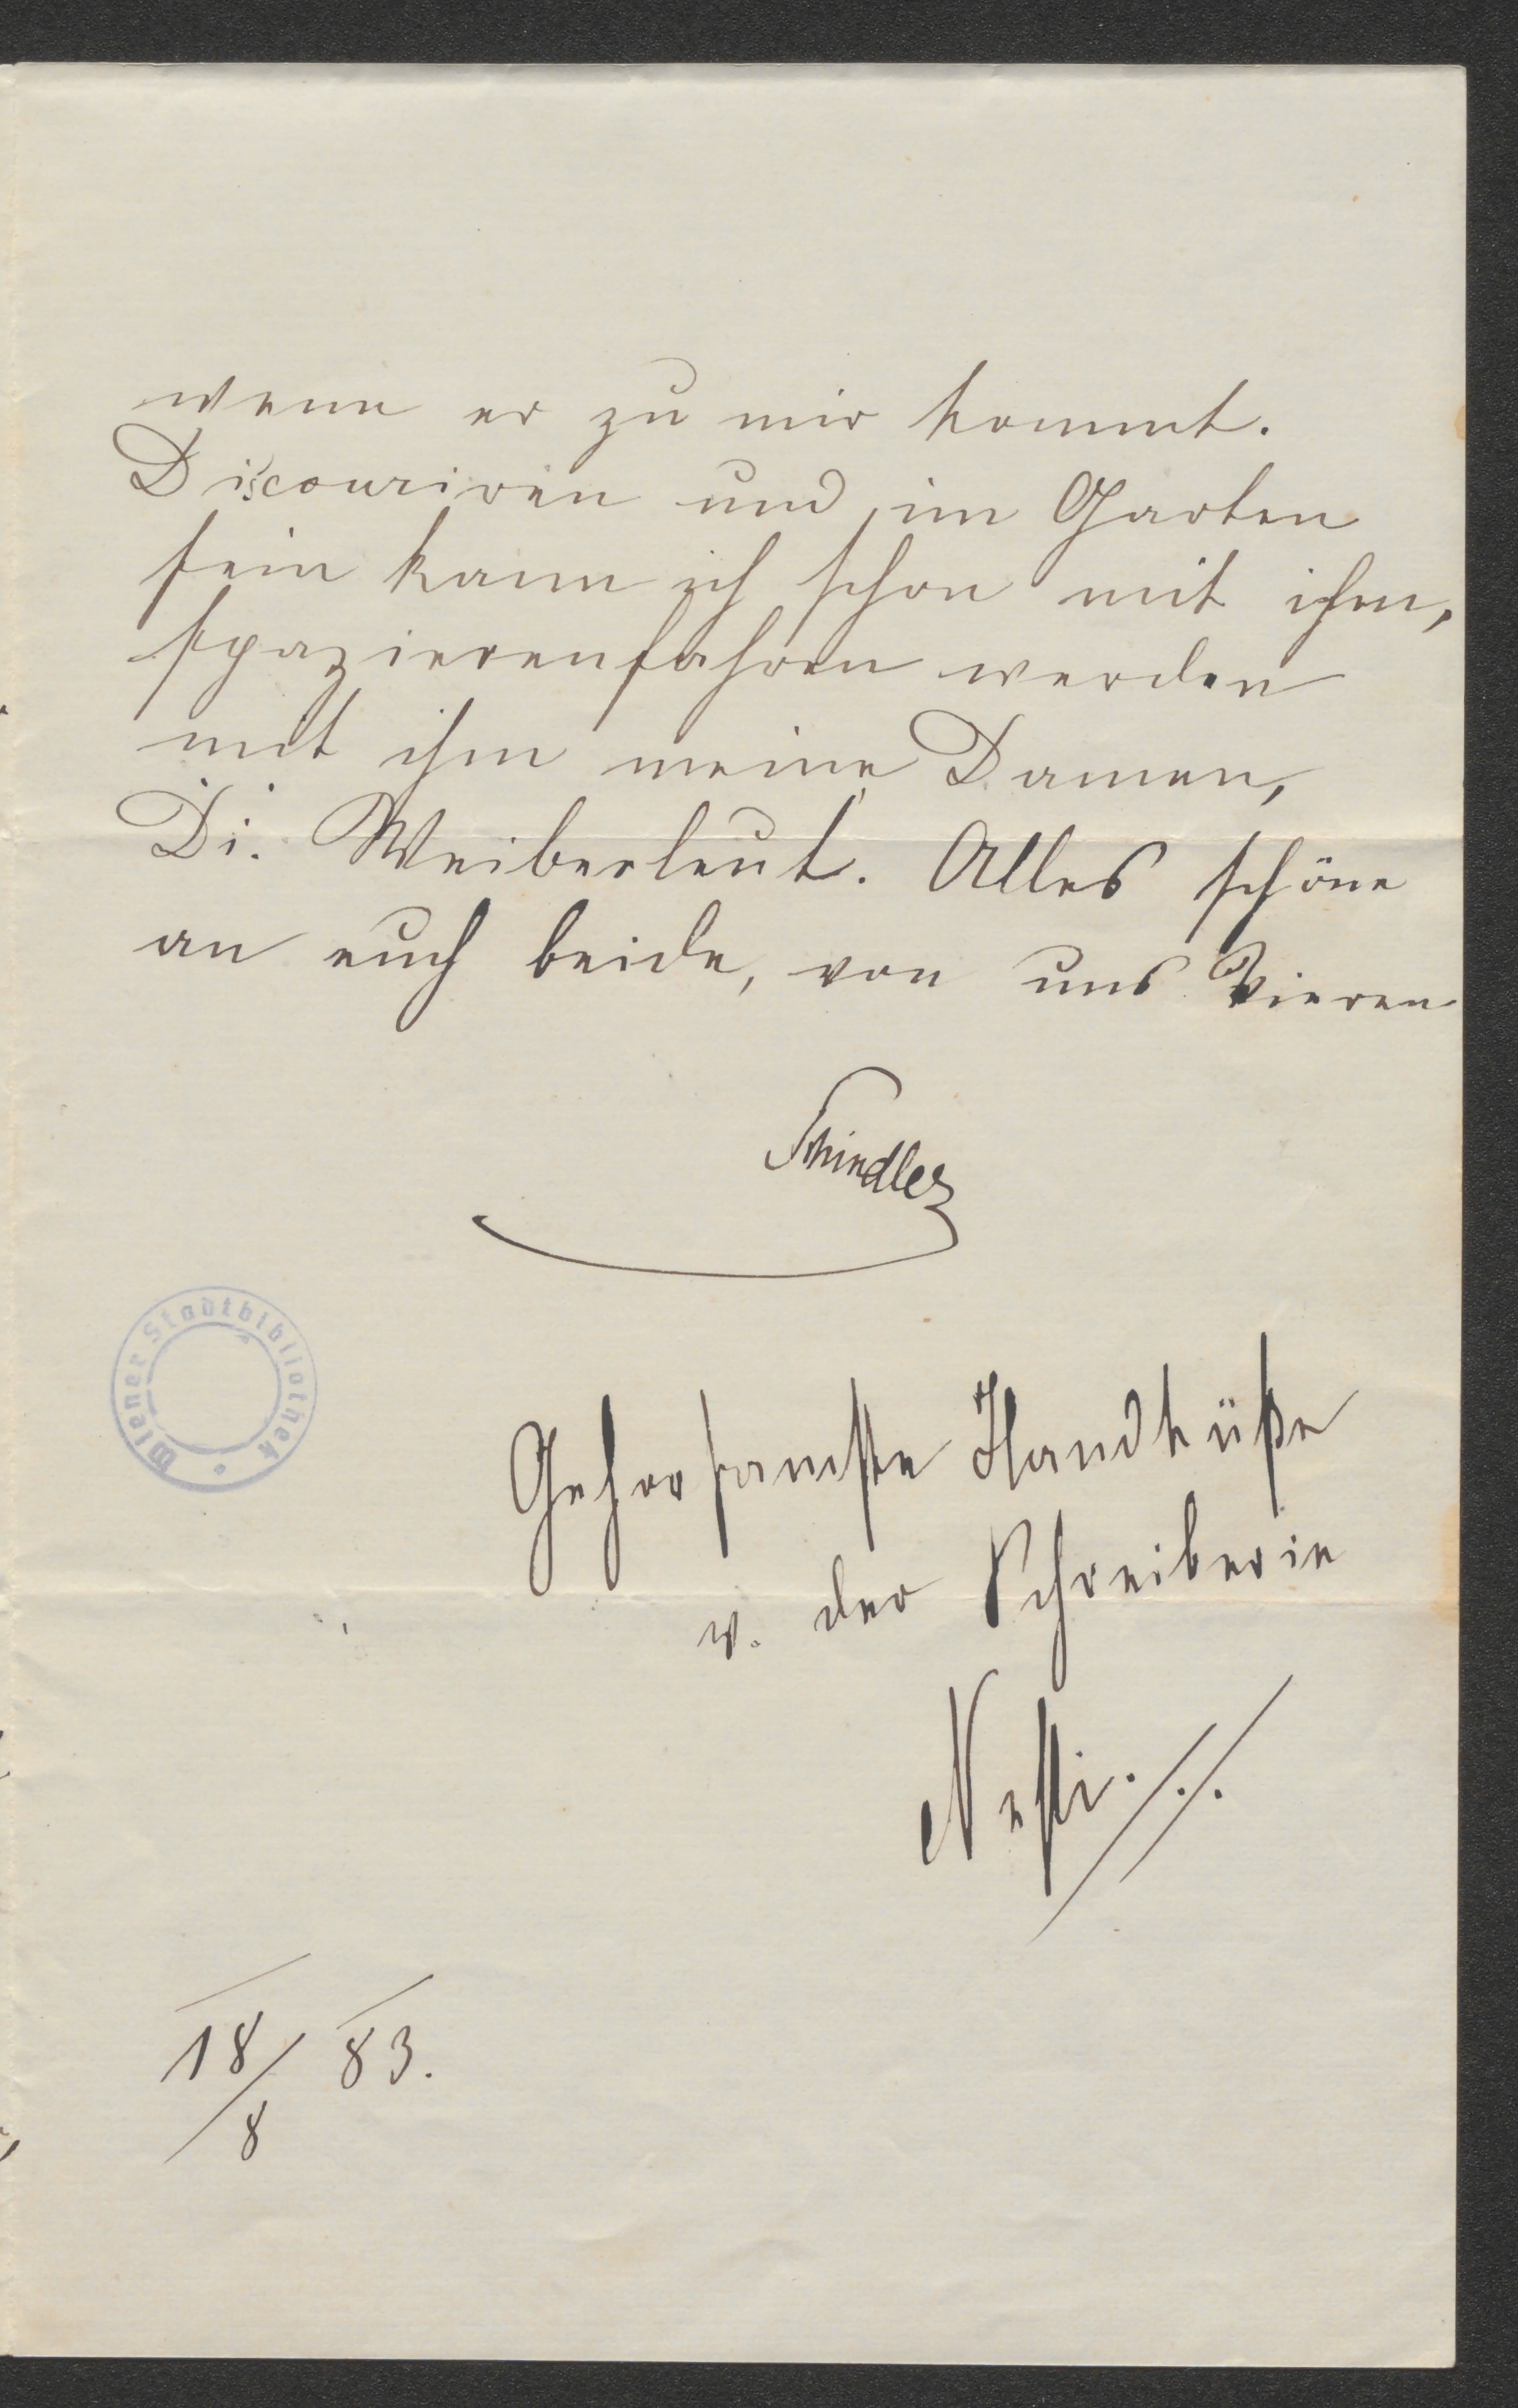 wenn er zu mir kommt.
Discouriren und im Garten
sein kann ich schon mit ihm,
spazierenfahren werden
mit ihm meine Damen,
Di. Weiberleut. Alles schöne
an euch beide, von uns Vieren
Schindler
Wiener Stadtbibliothek
Gehorsamste Handküße
v. der Schreiberin
Nesti.
18/8 83.